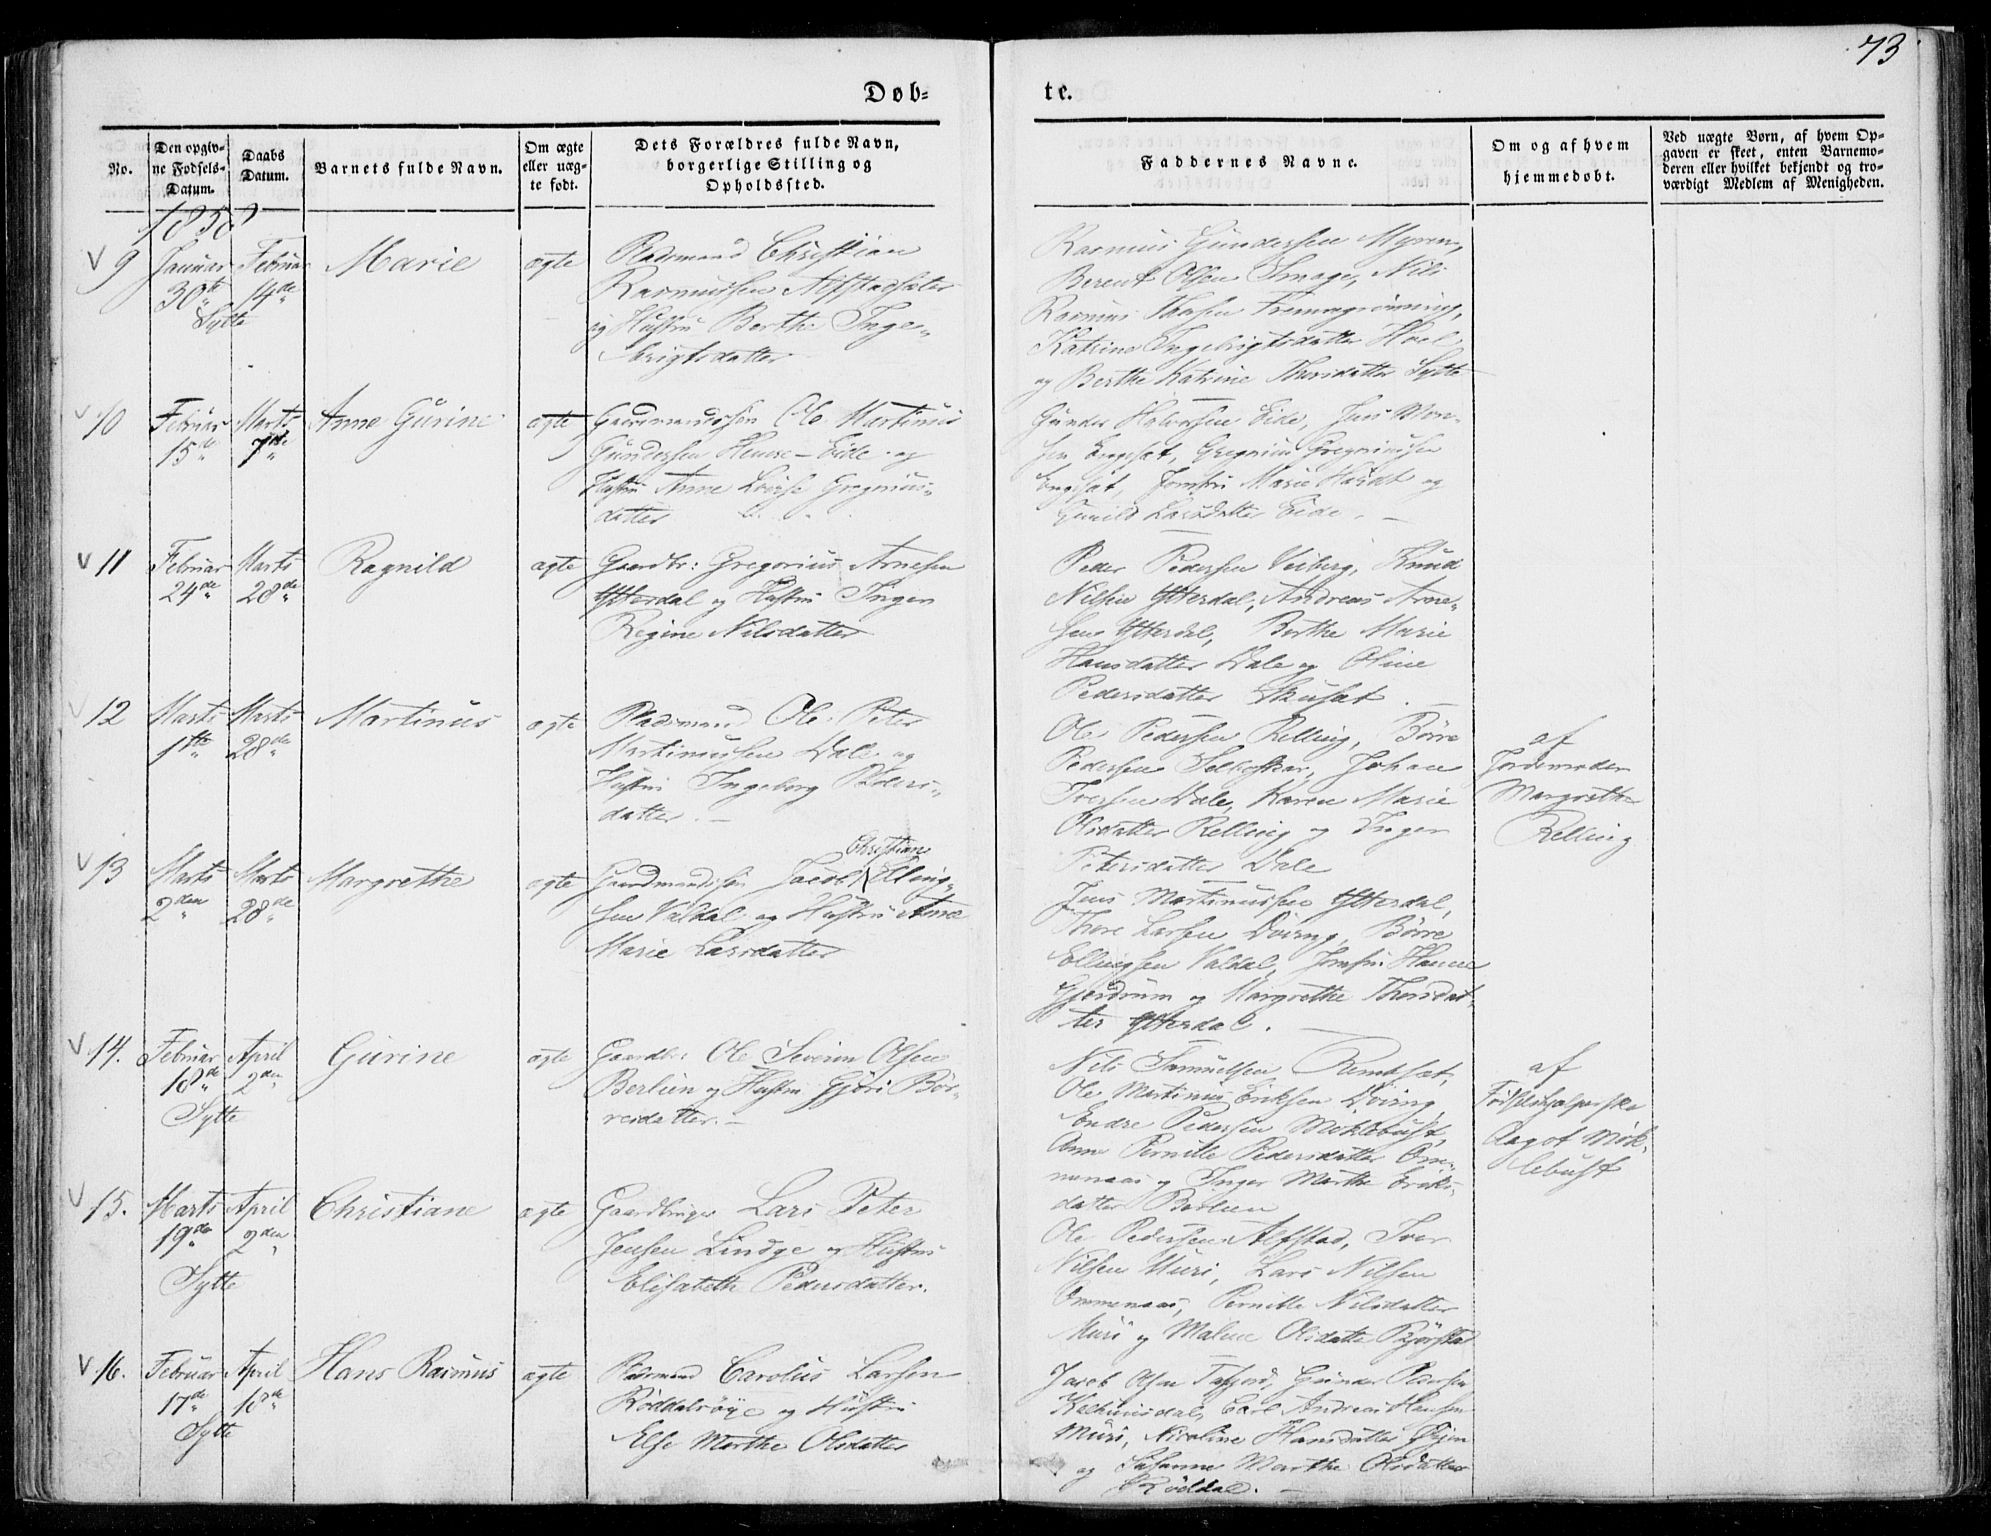 73
Døb-
te.
No.
Den opgiv-
ne Fødsels-
Datum.
Daabs
Datum.
Barnets fulde Navn.
Om ægte
eller uæg-
te født.
Dets Forældres fulde Navn,
borgerlige Stilling og
Opholdssted.
Faddernes Navne.
Om og af hvem
hjemmedøbt.
Ved uægte Børn, af hvem Op-
gaven er skeet, enten Barnemo-
deren eller hvilket bekjendt og tro-
værdigt Medlem af Menigheden.
1858
9
Januar
30te
Februar
14de
Sylte
Marie
ægte
Pladsmand Christian
Rasmussen Alfstadsæter
og Hustru Berthe Inge-
brigtsdatter
Rasmus Gundersen Myren,
Berent Olsen Smage, Nils
Rasmus Fremmegrønning,
Katrine Ingebrigtsdatter Hoel
og Berthe Katrine Thorsdatter Sylte
10
Februar
15de
Marts
7de
Anne Gurine
ægte
Gaardmandssøn Ole Martinus
Gundersen Eide og
Hustru Anne Lovise Gregorius-
datter
Gunder Halvorsen Eide, Jens Mon-
sen Engeset, Gregorius Gregoriussen
Engeset, Jomfru Marie og
Gunild Larsdatter Eide.
11
Februar
24de
Marts
28de
Ragnild
ægte
Gaardbr: Gregorius Arnesen
Ytterdal og Hustru Inger
Regine Nilsdatter
Peder Pedersen Veiberg, Knud
Nilsen Ytterdal, Andreas Arne-
sen Ytterdal, Berthe Marie
Hansdatter Dale og Oline
Pedersdatter
12
Marts
1ste
Marts
28de
Martinus
ægte
Pladsmand Ole Peter
Martinussen Dale og
Hustru Ingeborg Peders-
datter.
Ole Pedersen Relling, Børre
Pedersen Selboskar, Johan
Iversen Dale, Karen Marie
Olsdatter Relling og Inger
Petersdatter Dale
af
Jordemoder
Margrethe
Relling
13
Marts
2den
Marts
28de
Margrethe
ægte
Christian
Gaardmandssøn Jacob Elling-
sen Valdal og Hustru Anne
Marie Larsdatter
Jens Martinussen Ytterdal,
Thore Larsen Døving, Børre
Ellingsen Valdal, Jomfru Hanne
Gjerdrum og Margrethe Thorsdat-
ter Ytterdal.
14.
Februar
18de
April
2den
Sylte
Gurine
ægte
Gaardbr: Ole Severin Olsen
Berlien og Hustru Gjøri Bør-
resdatter.
Nils Samuelsen Remset,
Ole Martinus Eriksen Døving,
Endre Pedersen Møklebust,
Anne Pernille Pedersdatter Om-
menaas og Inger Marthe Eriks-
datter Berlien
af
Fødselshjelperske
Aagot Møk-
lebust
15.
Marts
19de
April
2den
Sylte
Christiane
ægte
Gaardbruger Lars Peter
Jensen Lindge og Hustru
Elisabeth Pedersdatter.
Ole Pedersen Alfstad, Iver
Nilsen Muri, Lars Nilsen
Ommenaas, Pernille Nilsdatter
Muri og Malene Olsdatter Bjørstad
16.
Februar
17de
April
18de
Sylte
Hans Rasmus
ægte
Pladsmand Carolus Larsen
Røddalsøye og Hustru
Else Marthe Olsdatter
Jacob Olsen Tafjord, Gunder
Kalhusdal, Carl Andreas Hansen
Muri, Nicoline Hansdatter Øyen
og Susanne Marthe Olsdatter
Røddal.